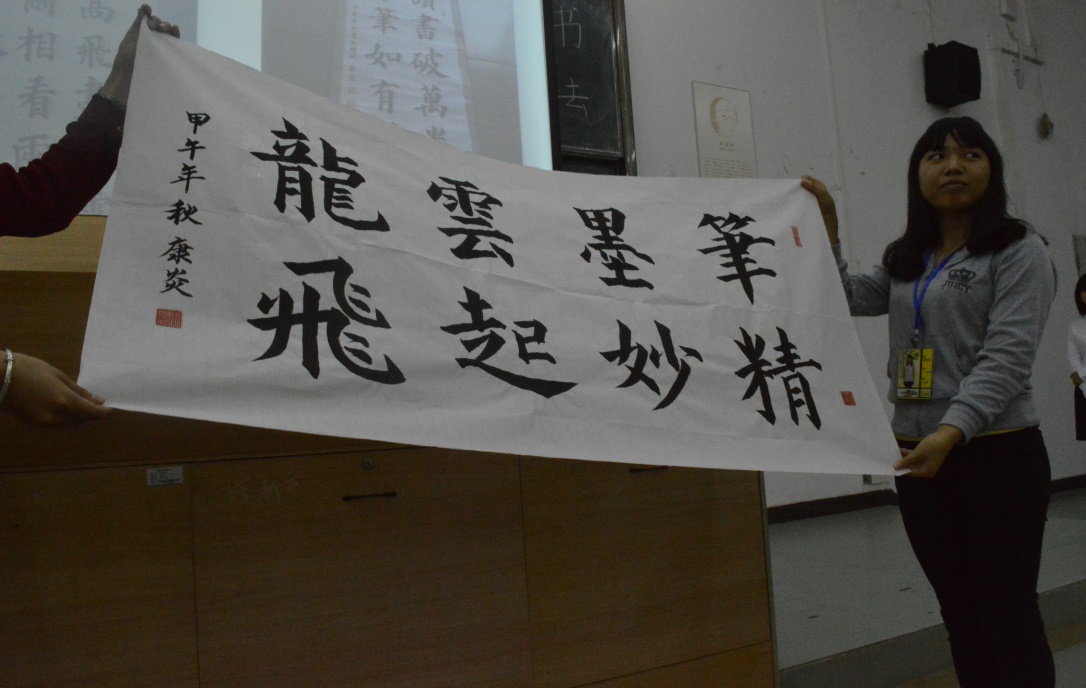 筆精
墨妙
雲起
龍飛
甲午年秋康炎
書破萬
筆如有
高飛
相看
书去
JUICY